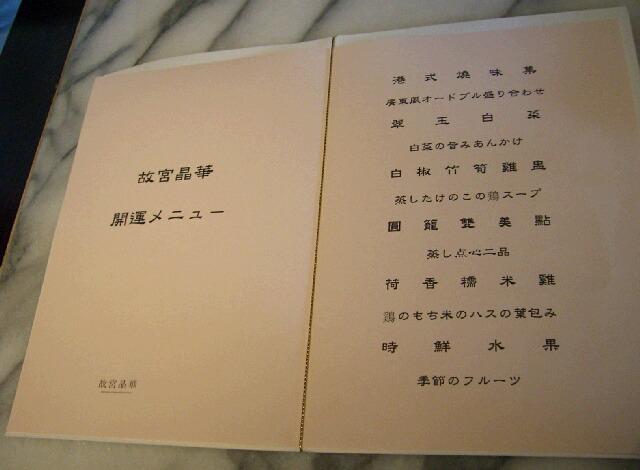 故宮晶華
開運メニュー
故宮晶華
港式燒味集
廣東風オードブル盛り合わせ
翠玉白菜
白菜の旨みあんかけ
白椒竹筍雞盅
蒸したけのこの鶏スープ
圓籠雙美點
蒸し点心二品
荷香糯米雞
鶏のもち米のハスの葉包み
時鮮水果
季節のフルーツ